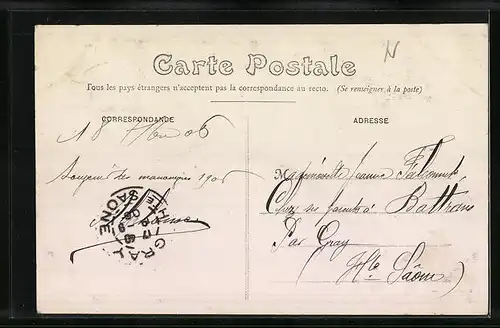 N
Carte Postale
Tous les pays étrangers n'acceptent pas la correspondance au recto. (Se renseigner à la poste)
CORRESPONDANCE
ADRESSE
18 06
Souvenir des manœuvres 1906
Mademoiselle Jeanne
Chez ses parents à Battrans
Par Gray
Hte Saône)
GRAY
Hte SAONE